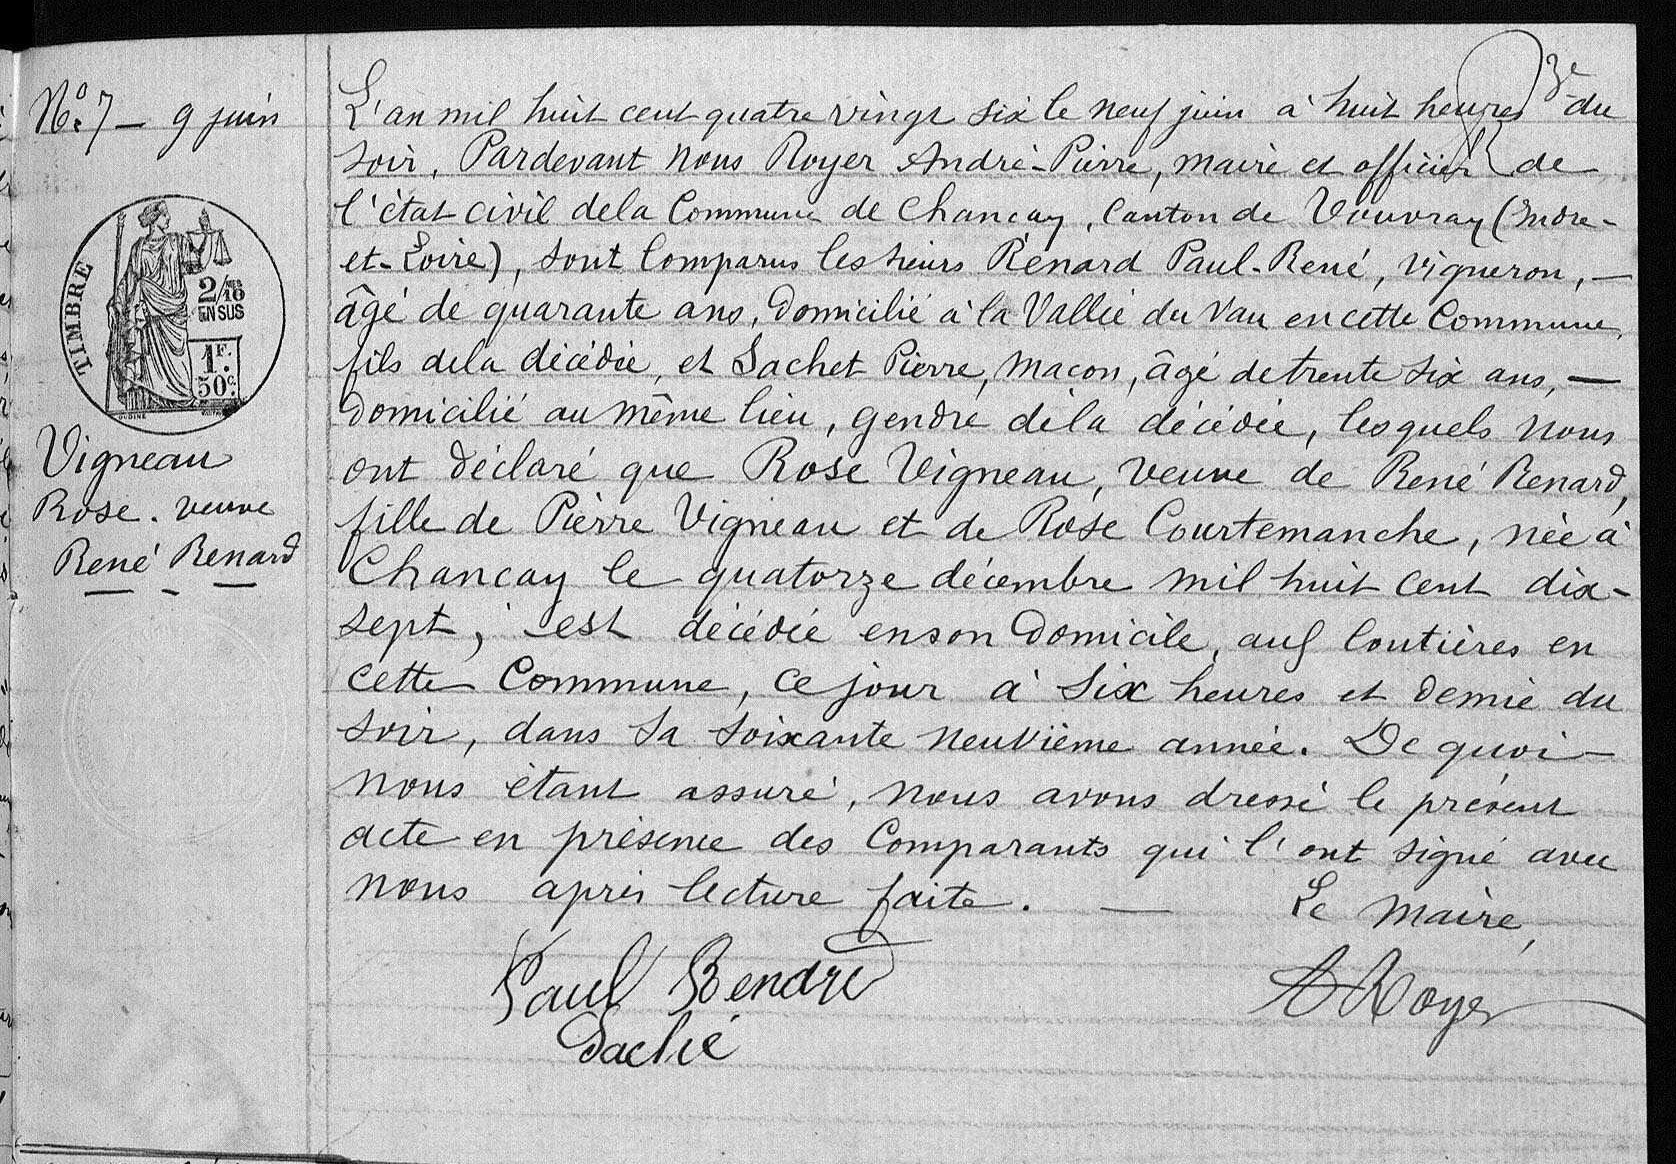 3e
N.º 7 — 9 juin
TIMBRE
2/10 MES
EN SUS
1F.
50c.
OUDINÉ
Vigneau
Rose. veuve
René Renard
L'an mil huit cent quatre vingt six le neuf juin à huit heures du
soir, Pardevant nous Royer André-Pierre, maire et officier de
l'état civil dela Commune de Chançay, Canton de Vouvray (Indre-
et-Loire), sont Comparus les sieurs Renard Paul-René, vigneron, —
âgé de quarante ans, domicilié à la Vallée du Vau en cette Commune,
fils dela décédée, et Sachet Pierre, maçon, âgé de trente six ans, —
domicilié au même lieu, gendre dela décédée, lesquels nous
ont déclaré que Rose Vigneau, veuve de René Renard,
fille de Pierre Vigneau et de Rose Courtemanche, née à
Chançay le quatorze décembre mil huit cent dix-
sept, est décédée en son domicile, aux Coutières en
cette Commune, ce jour à six heures et demie du
soir, dans sa soixante neuvième année. De quoi —
nous étant assuré, nous avons dressé le présent
acte en présence des Comparants qui l'ont signé avec
nous après lecture faite. — Le Maire,
Paul
A Royer